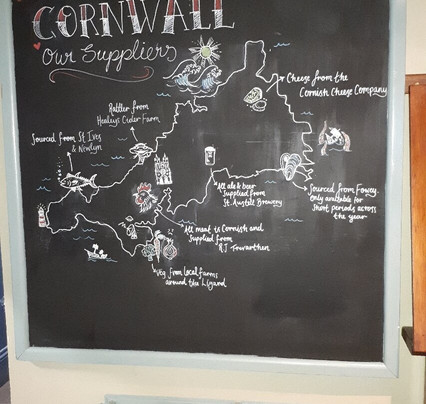 CORNWALL
Our Suppliers
Cheese from the
Cornish Cheese Company
Rattler from
Healeys Cider Farm
Sourced from St Ives
& Newlyn
All ale & beer
supplied from
St. Austell Brewery
Sourced from Fowey.
Only available for
short periods across
the year
All meat is Cornish and
supplied from
RJ Trevarthen
Veg from local farms
around the Lizard